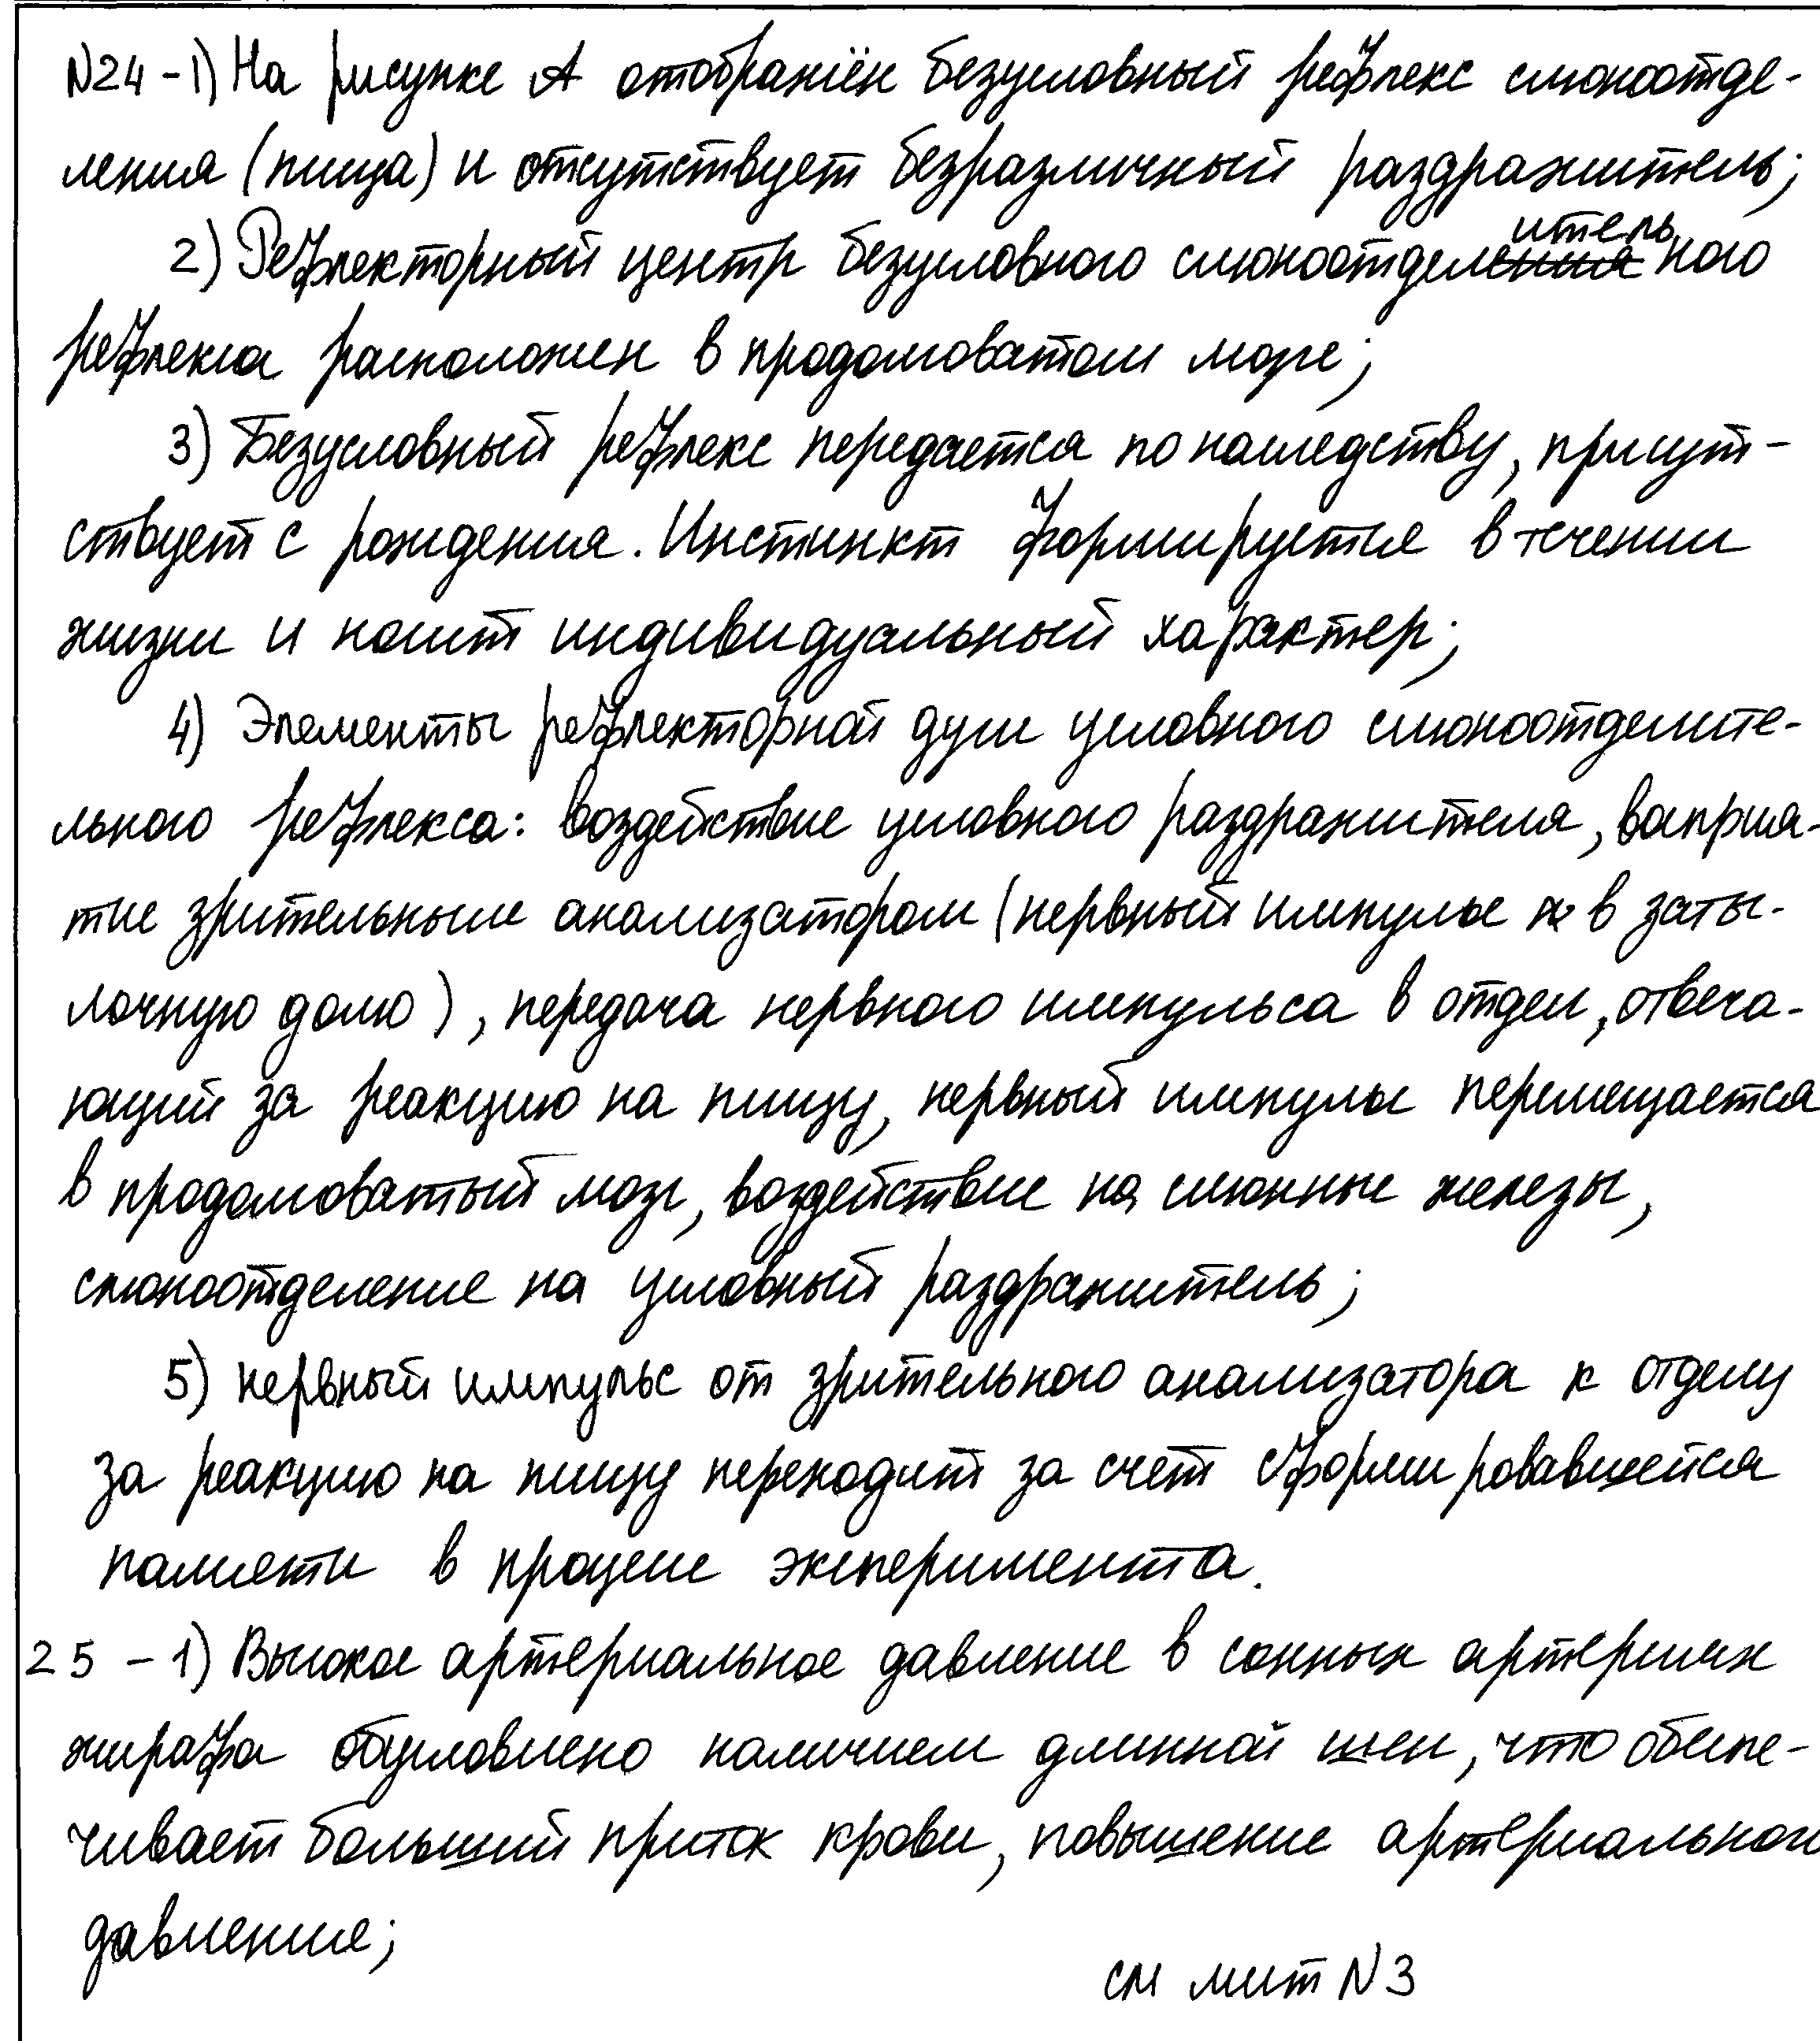 N24 - 1) На рисунке А отображён безусловный рефлекс слюноотде-
ления (пища) и отсутствует безразличный раздражитель;
2) Рефлекторный центр безусловного слюноотделительного
рефлекса расположен в продолговатом мозге;
3) Безусловный рефлекс передается по наследству, присут-
ствует с рождения. Инстинкт формируется в течении
жизни и носит индивидуальный характер;
4) Элементы рефлекторной дуги условного слюноотделите-
льного рефлекса: воздействие условного раздражителя, восприя-
тие зрительным анализатором (нервный импульс в заты-
лочную долю), передача нервного импульса в отдел, отвеча-
ющий за реакцию на пищу, нервный импульс перемещается
в продолговатый мозг, воздействие на слюнные железы,
слюноотделение на условный раздражитель;
5) нервный импульс от зрительного анализатора к отделу
за реакцию на пищу переходит за счет сформировавшейся
памяти в процессе эксперимента.
25 - 1) Высокое артериальное давление в сонных артериях
жирафа обусловлено наличием длинной шеи, что обеспе-
чивает больший приток крови, повышение артериального
давление;
см лист N3